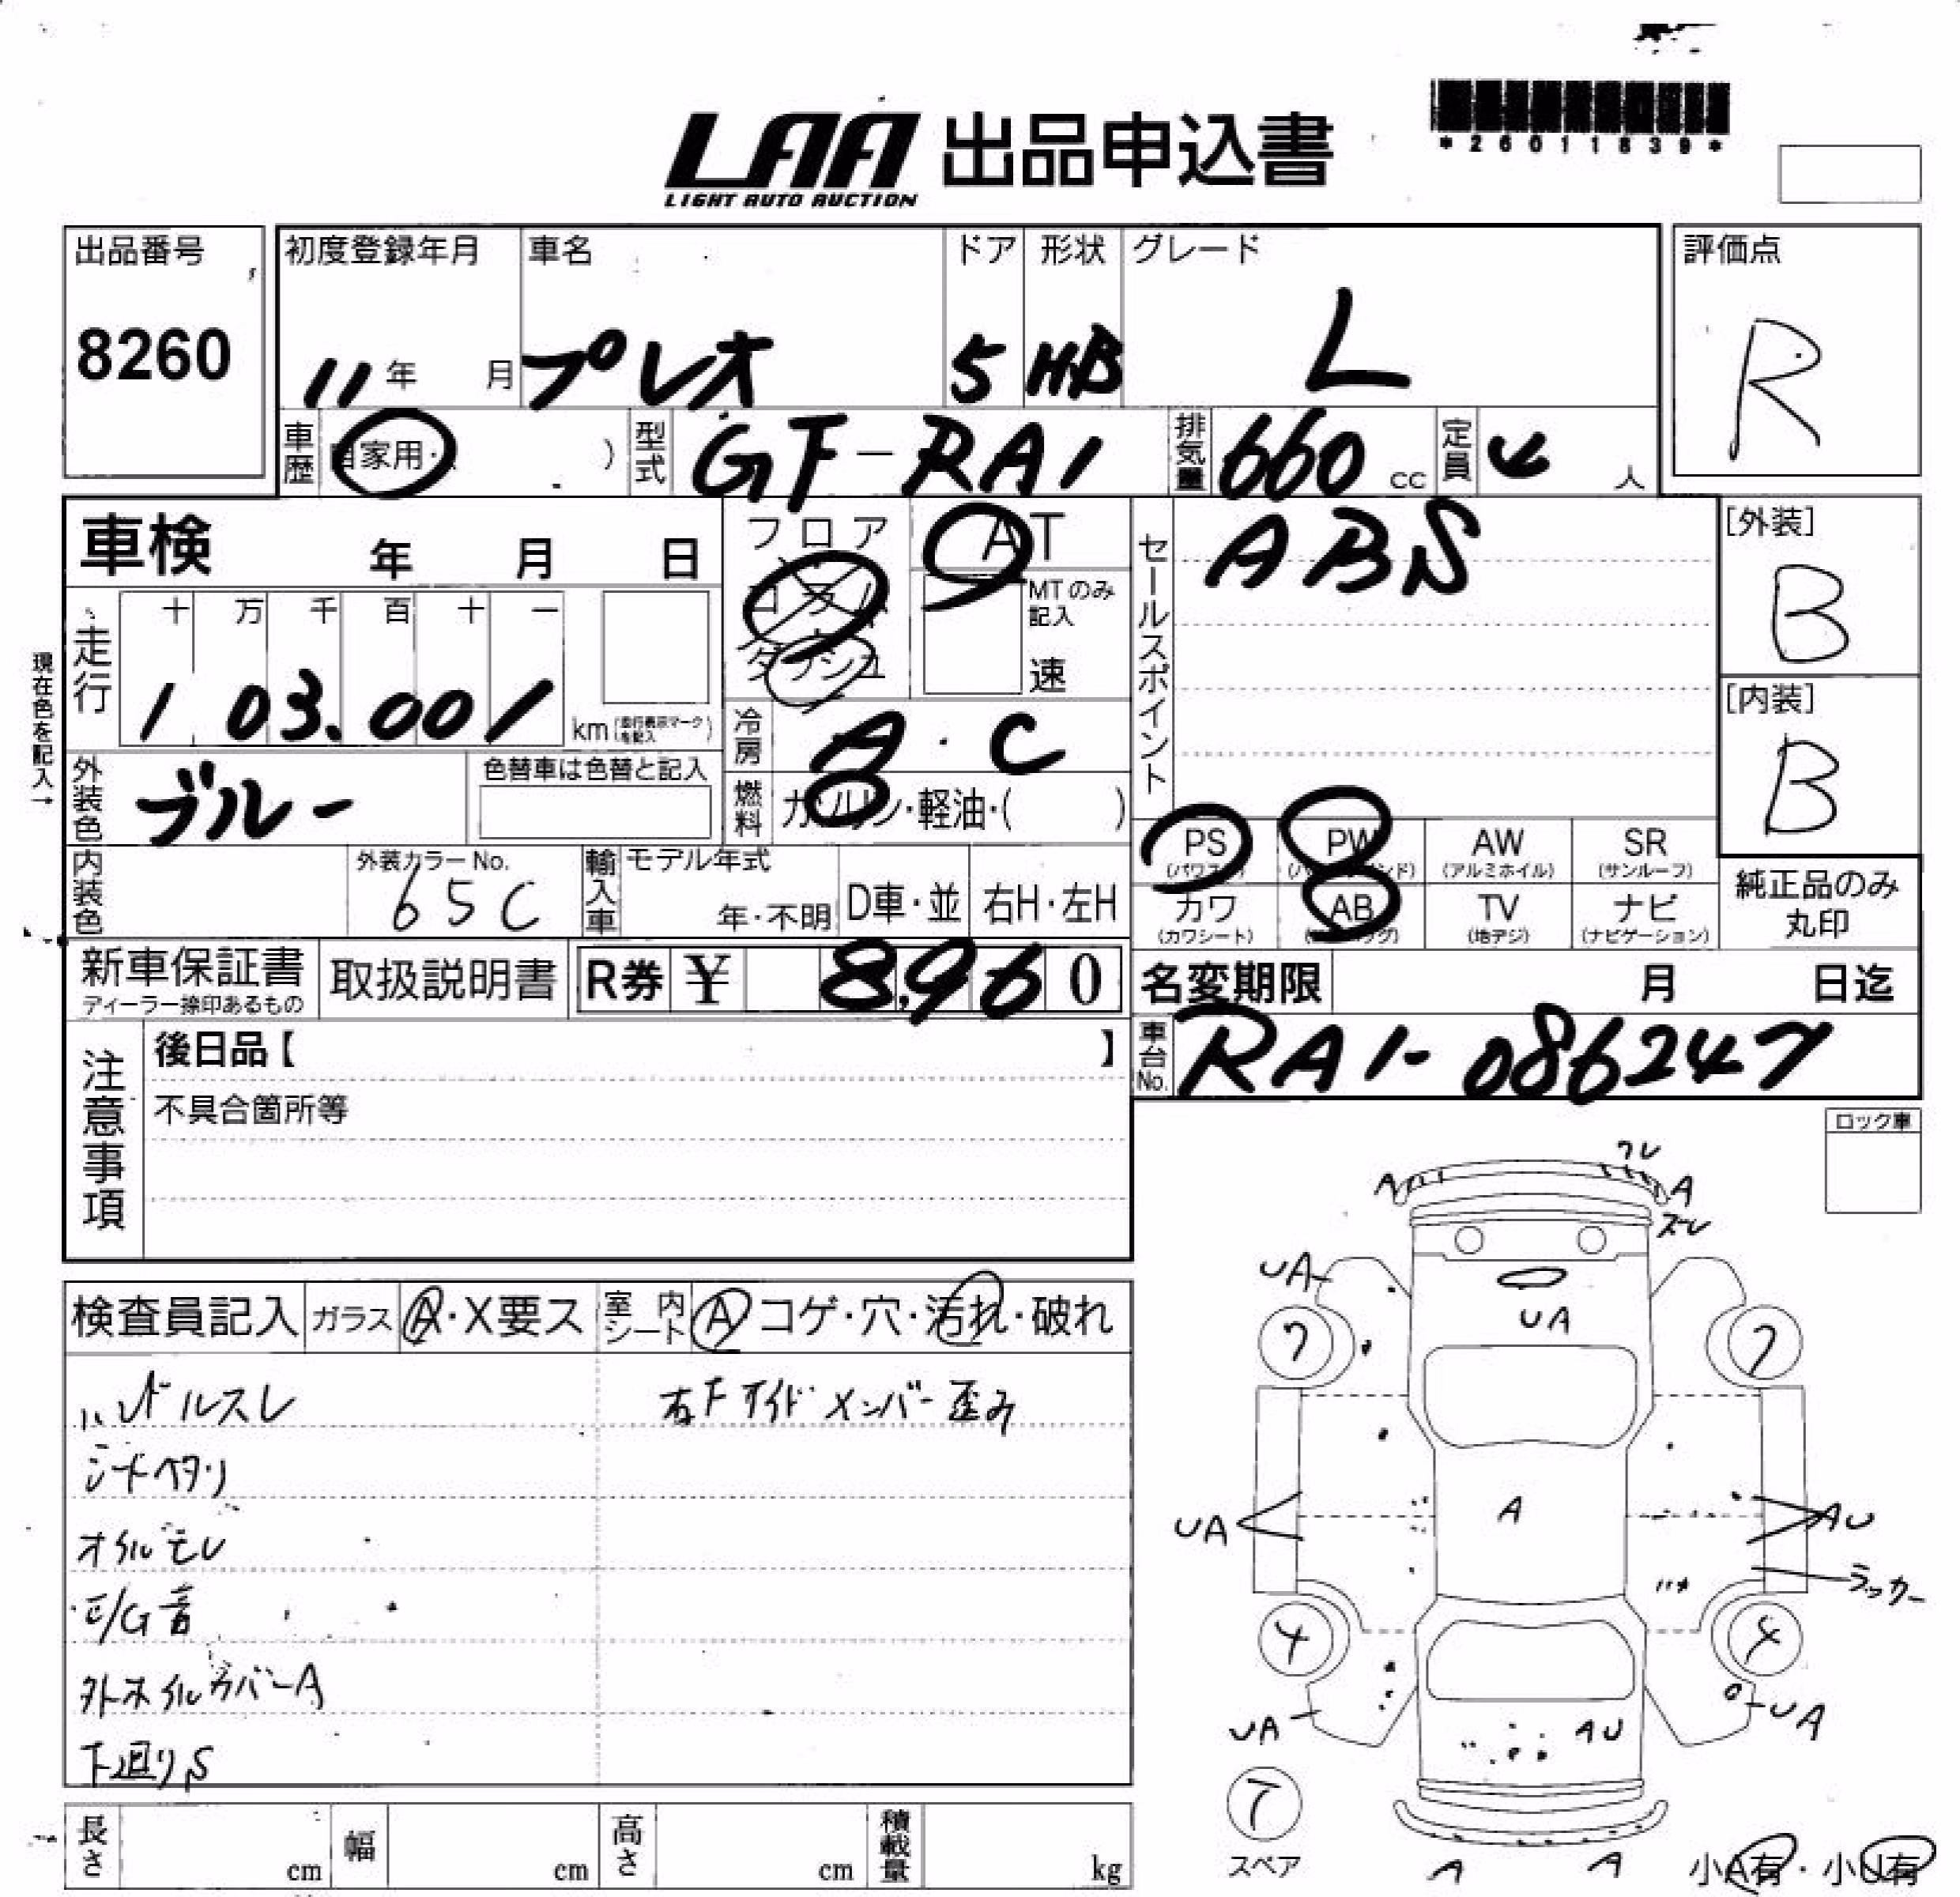 LAA 出品申込書
LIGHT AUTO AUCTION
*26011839*
出品番号
8260
初度登録年月
11年 月
車名
プレオ
ドア
5
形状
HB
グレード
L
評価点
R
車歴
自家用・ )
型式
GF-RA1
排気量
660 cc
定員
4 人
車検 年 月 日
フロア
コラム
ダッシュ
AT
MTのみ
記入
速
セールスポイント
ABS
[外装]
B
[内装]
B
現在色を記入→
走行
十 万 千 百 十 一
103.001 km
(走行表示マーク
を記入)
冷房
A・C
外装色
ブルー
色替車は色替と記入
燃料
ガソリン・軽油・( )
内装色
外装カラーNo.
65C
輸入車
モデル年式
年・不明
D車・並
右H・左H
PS
(パワステ)
PW
AW
(アルミホイル)
SR
(サンルーフ)
カワ
(カワシート)
AB
TV
(地デジ)
ナビ
(ナビゲーション)
純正品のみ
丸印
新車保証書
ディーラー捺印あるもの
取扱説明書
R券 ¥ 8,960
名変期限 月 日迄
車台No.
RA1-086247
注意事項
後日品【 】
不具合箇所等
ロック車
検査員記入
ガラス
A・X要ス
室内シート
A コゲ・穴・汚れ・破れ
ハンドルスレ
右Fサイドメンバー歪み
シートヘタリ
オイルモレ
E/G音
外ホイルカバーA
下廻りS
ワレ
A
A
ズレ
UA
UA
7
7
UA
A
AU
ラッカー
4
4
UA
AU
UA
7
スペア
A
A
小A有・小U有
長さ cm
幅 cm
高さ cm
積載量 kg